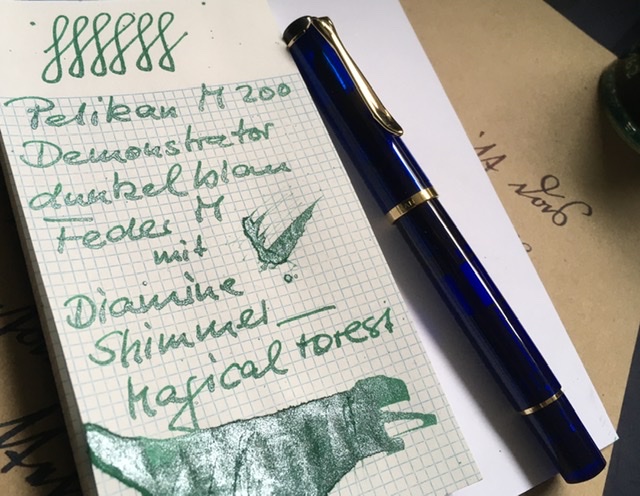 Pelikan M 200
Demonstrator
dunkelblau
Feder M
mit
Diamine
Shimmer
Magical forest